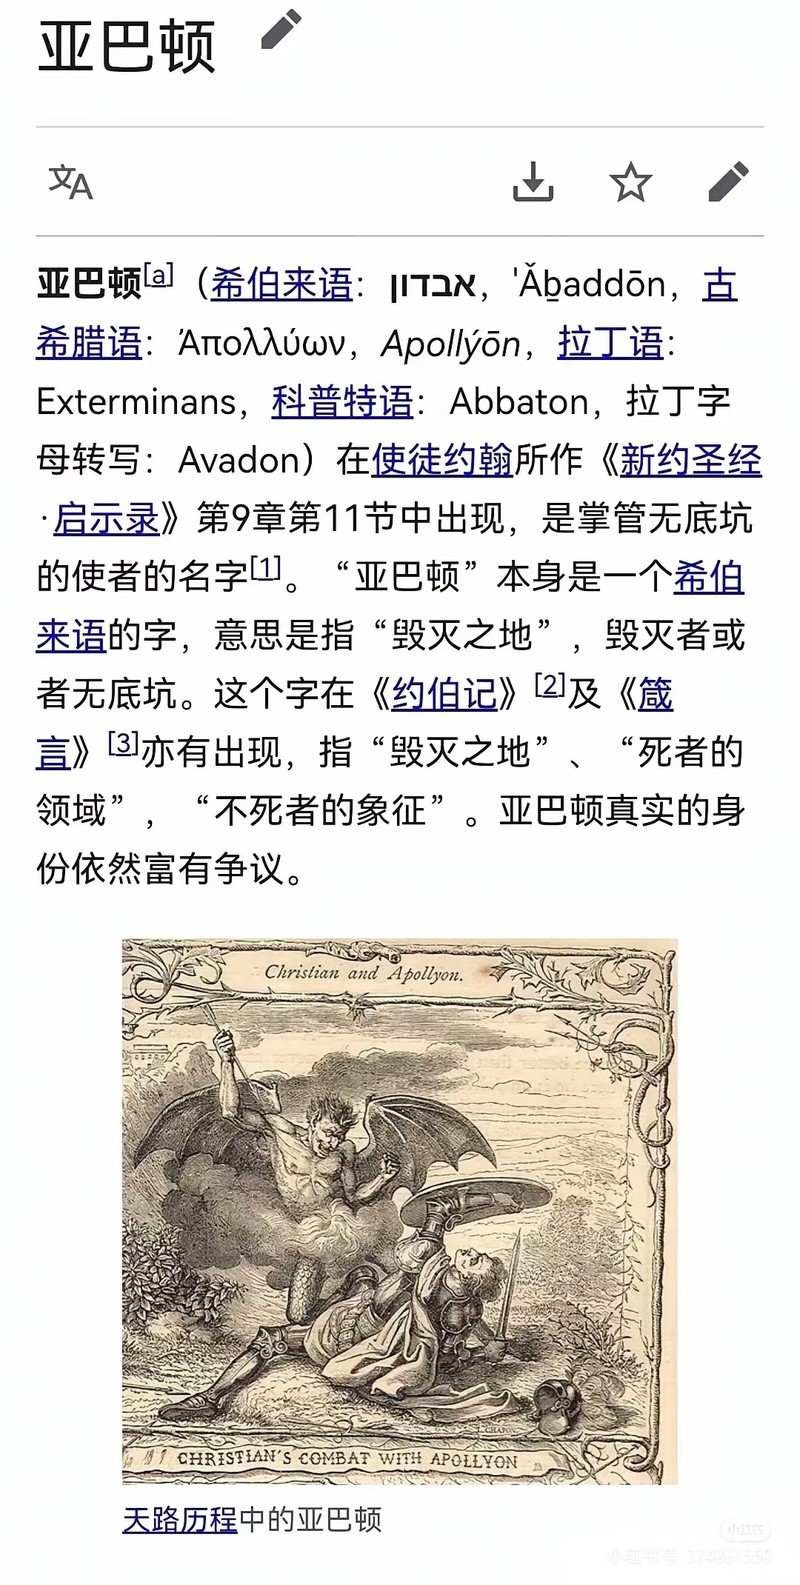 亚巴顿
文A
亚巴顿[a]（希伯来语：אבדון，ʾĂḇaddōn，古
希腊语：Ἀπολλύων，Apollýōn，拉丁语：
Exterminans，科普特语：Abbaton，拉丁字
母转写：Avadon）在使徒约翰所作《新约圣经
·启示录》第9章第11节中出现，是掌管无底坑
的使者的名字[1]。“亚巴顿”本身是一个希伯
来语的字，意思是指“毁灭之地”，毁灭者或
者无底坑。这个字在《约伯记》[2]及《箴
言》[3]亦有出现，指“毁灭之地”、“死者的
领域”，“不死者的象征”。亚巴顿真实的身
份依然富有争议。
Christian and Apollyon.
CHAPON
CHRISTIAN'S COMBAT WITH APOLLYON
天路历程中的亚巴顿
小红书